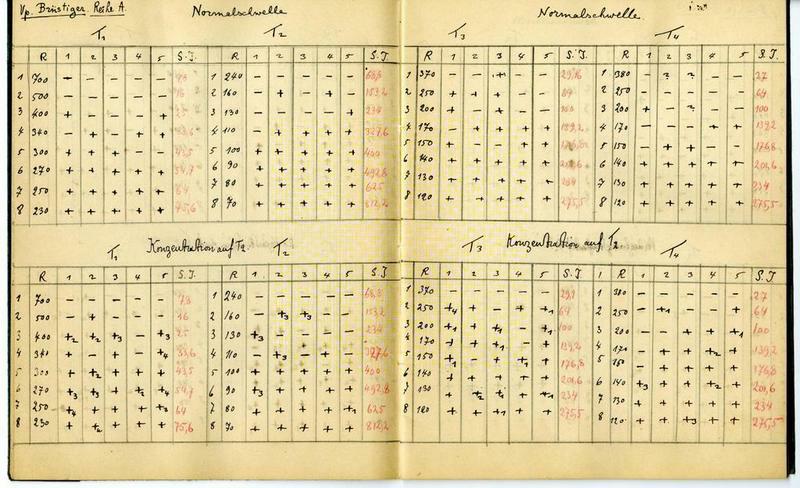 Vp. Brüstiger. Reihe A. Normalschwelle Normalschwelle
T1 T2 T3 T4
R 1 2 3 4 5 S.J. R 1 2 3 4 5 S.J. R 1 2 3 4 5 S.J. R 1 2 3 4 5 S.J.
1 700 + – – – – 1 240 – – – – – 68,8 1 370 – – + – – 29,16 1 380 – ? ? – – 27
2 500 – – – – – 16 2 160 – + – + – 153,2 2 250 + + + – – 64 2 250 – – – – – 64
3 400 + – – – + 25 3 130 – – – – + 234 3 200 + – + – – 100 3 200 + – ? – – 100
4 340 – + – + + 33,6 4 110 – + + + + 327,6 4 170 – + + + + 139,2 4 170 – – – + + 139,2
5 300 + + + – – 43,5 5 100 + + + + + 400 5 150 + – – + + 176,8 5 150 – + + – – 176,8
6 270 + + + + + 54,7 6 90 + + + + + 492,8 6 140 + + + + + 201,6 6 140 + + + + + 201,6
7 250 + + + + + 64 7 80 + + + + + 625 7 130 + + + + + 234 7 130 + + + + + 234
8 230 + + + + + 75,6 8 70 + + + + + 812,2 8 120 + + + + + 275,5 8 120 + + + + + 275,5
Konzentration auf T2. Konzentration auf T2
T1 T2 T3 T4
R 1 2 3 4 5 S.J. R 1 2 3 4 5 S.J. R 1 2 3 4 5 S.J. R 1 2 3 4 5 S.J.
1 700 – – – – – 7,8 1 240 – – – – – 68,8 1 370 – – – – – 29,1 1 380 – – – – – 27
2 500 – + – – – 16 2 160 – +3 +3 – – 153,2 2 250 +4 + – + +1 64 2 250 – +1 – – – 64
3 400 +2 +2 +3 – +3 25 3 130 +3 – – – – 234 3 200 +1 + +1 – +1 100 3 200 – – + + +1 100
4 341 + – – + +4 33,6 4 110 – +3 – + – 327,6 4 170 + + +1 – – 139,2 4 170 – + – +2 + 139,2
5 300 + +2 + + + 43,5 5 100 + + + + + 400 5 150 +1 – – +1 + 176,8 5 150 + + + + + 176,8
6 270 +3 +3 + +2 +2 54,7 6 90 +3 + + + + 492,8 6 140 + + + + + 201,6 6 140 +3 + + +2 + 201,6
7 250 +4 + + + +3 64 7 80 + – + + +1 625 7 130 – +2 +1 + +1 234 7 130 + + + + + 234
8 230 + +2 + + + 75,6 8 70 + + + + + 812,2 8 120 + + +1 + + 275,5 8 120 + + +3 + + 275,5